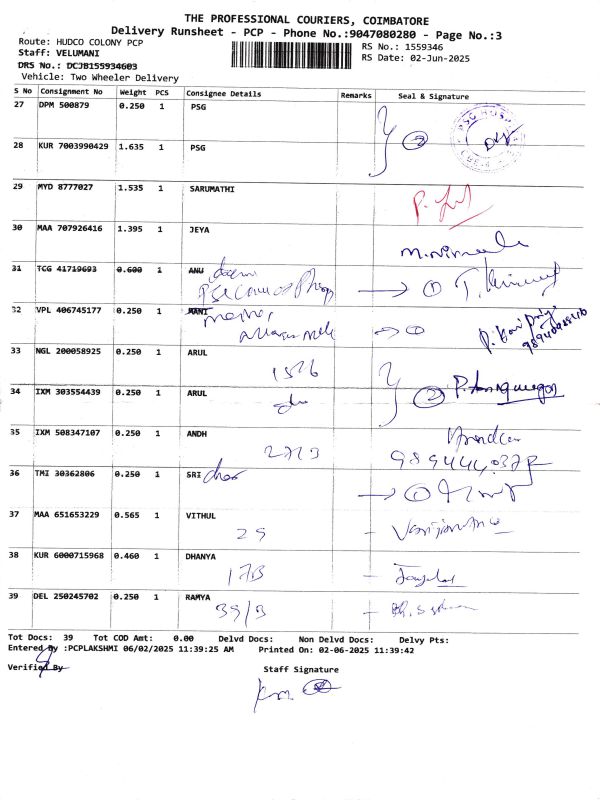 THE PROFESSIONAL COURIERS, COIMBATORE
Delivery Runsheet - PCP - Phone No.:9047080280 - Page No.:3
Route: HUDCO COLONY PCP
RS No.: 1559346
Staff: VELUMANI
RS Date: 02-Jun-2025
DRS No.: DCJB155934603
Vehicle: Two Wheeler Delivery
S No Consignment No Weight PCS Consignee Details Remarks Seal & Signature
27 DPM 500879 0.250 1 PSG
2
28 KUR 7003990429 1.635 1 PSG
29 MYD 8777027 1.535 1 SARUMATHI
30 MAA 707926416 1.395 1 JEYA
31 TCG 41719693 0.600 1 ANU
1
32 VPL 406745177 0.250 1 MANI
1
33 NGL 200058925 0.250 1 ARUL
2
34 IXM 303554439 0.250 1 ARUL
35 IXM 508347107 0.250 1 ANDH
36 TMI 30362806 0.250 1 SRI
1
37 MAA 651653229 0.565 1 VITHUL
29
38 KUR 6000715968 0.460 1 DHANYA
17B
39 DEL 250245702 0.250 1 RAMYA
39/3
Tot Docs: 39 Tot COD Amt: 0.00 Delvd Docs: Non Delvd Docs: Delvy Pts:
Entered By :PCPLAKSHMI 06/02/2025 11:39:25 AM Printed On: 02-06-2025 11:39:42
Verified By Staff Signature